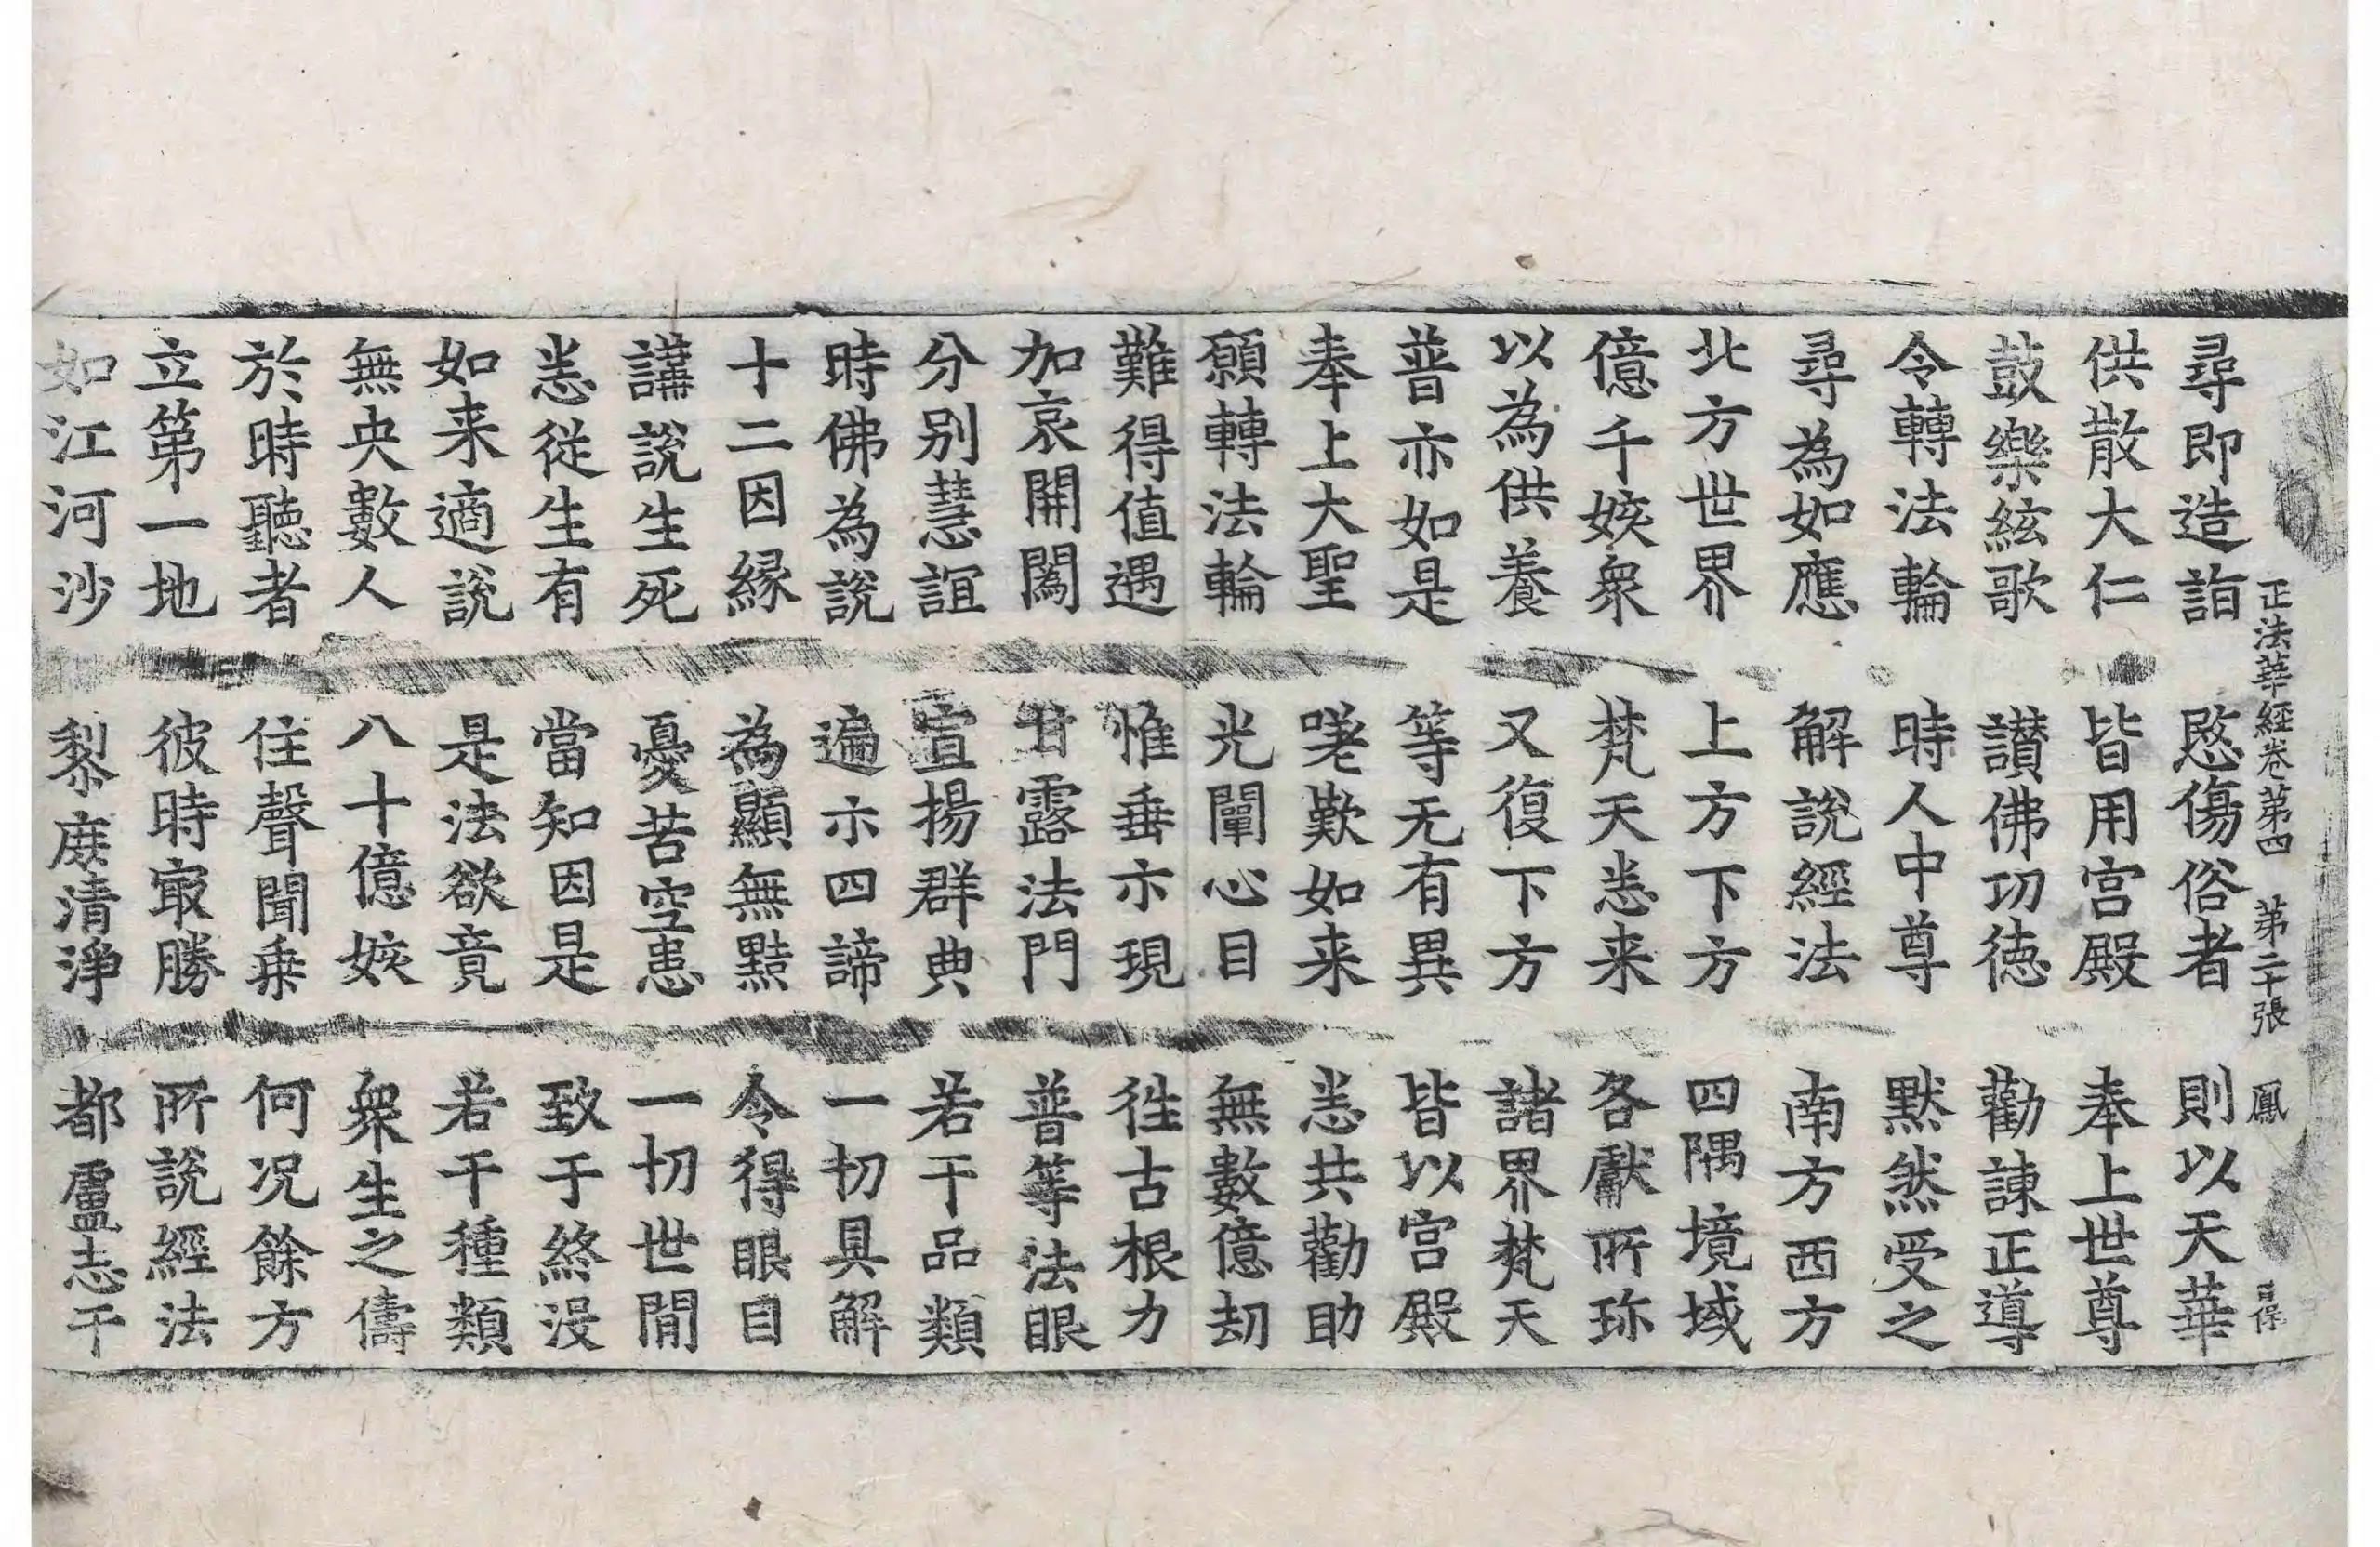 正法華經卷第四 第二十張 鳳 吉保
尋即造詣 愍傷俗者 則以天華
供散大仁 皆用宮殿 奉上世尊
鼓樂絃歌 讃佛功徳 勸諫正導
令轉法輪 時人中尊 黙然受之
尋為如應 解說經法 南方西方
北方世界 上方下方 四隅境域
億千姟衆 梵天恙来 各獻所珎
以為供養 又復下方 諸界梵天
普亦如是 等无有異 皆以宮殿
奉上大聖 嗟歎如来 恙共勸助
願轉法輪 光闡心目 無數億劫
難得值遇 惟垂示現 徃古根力
加哀開闊 甘露法門 普等法眼
分別慧誼 宣揚群典 若干品類
時佛為說 遍示四諦 一切具解
十二因縁 為顯無黠 令得眼目
講說生死 憂苦空患 一切世間
恙從生有 當知因是 致于終没
如来適說 是法欲竟 若干種類
無央數人 八十億姟 衆生之儔
於時聽者 住聲聞乗 何况餘方
立第一地 彼時㝡勝 所說經法
如江河沙 黎庻清淨 都盧志干